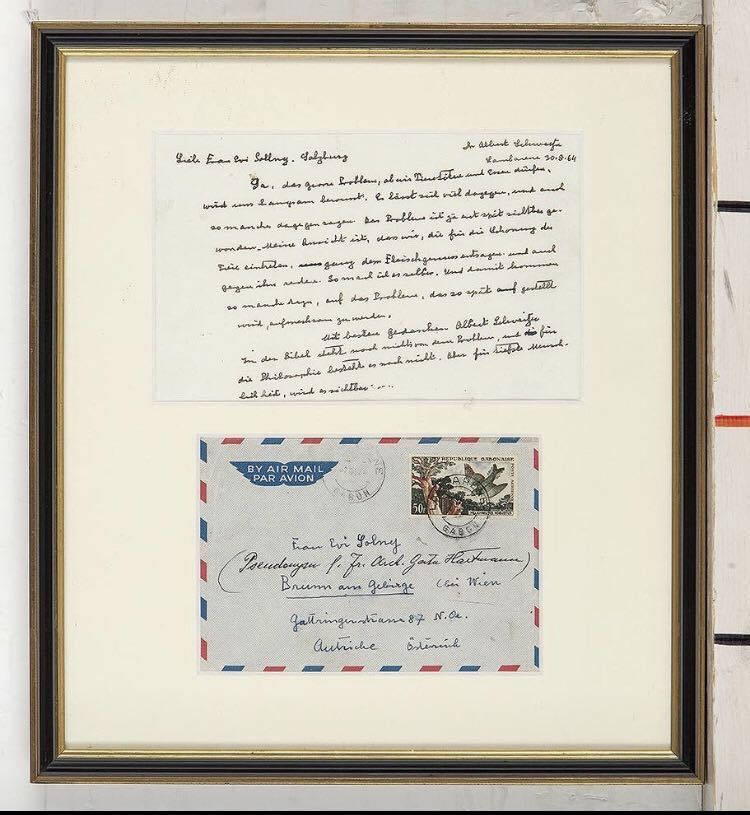 Dr Albert Schweitzer
Liebe Frau Evi Sollny. Salzburg
Lambarene 20.8.64
Ja, das grosse Problem, ob wir Tiere töten und essen dürfen,
wird uns langsam bewusst. Es lässt sich viel dagegen, und auch
so manches dagegen sagen. Das Problem ist ja erst spät sichtbar ge-
worden. Meine Ansicht ist, dass wir, die für die Schonung der
Tiere eintreten, ganz dem Fleischgenuss entsagen und auch
gegen ihn reden. So mach ich es selber. Und damit kommen
so manche dazu, auf das Problem, das so spät aufgestellt
wird, aufmerksam zu werden.
Mit besten Gedanken Albert Schweitzer
In der Bibel steht noch nichts von dem Problem, und für
die Philosophie besteht es noch nicht. Aber für tiefste Mensch-
lichkeit, wird es sichtbar.....
BY AIR MAIL
PAR AVION
GABON
REPUBLIQUE GABONAISE
POSTE AERIENNE
50F
GABON
Frau Evi Solny
(Pseudonym f. Fr. Hartmann)
Brunn am Gebirge (bei Wien
Gattringerstrasse 87 N.Oe.
Autriche Österreich